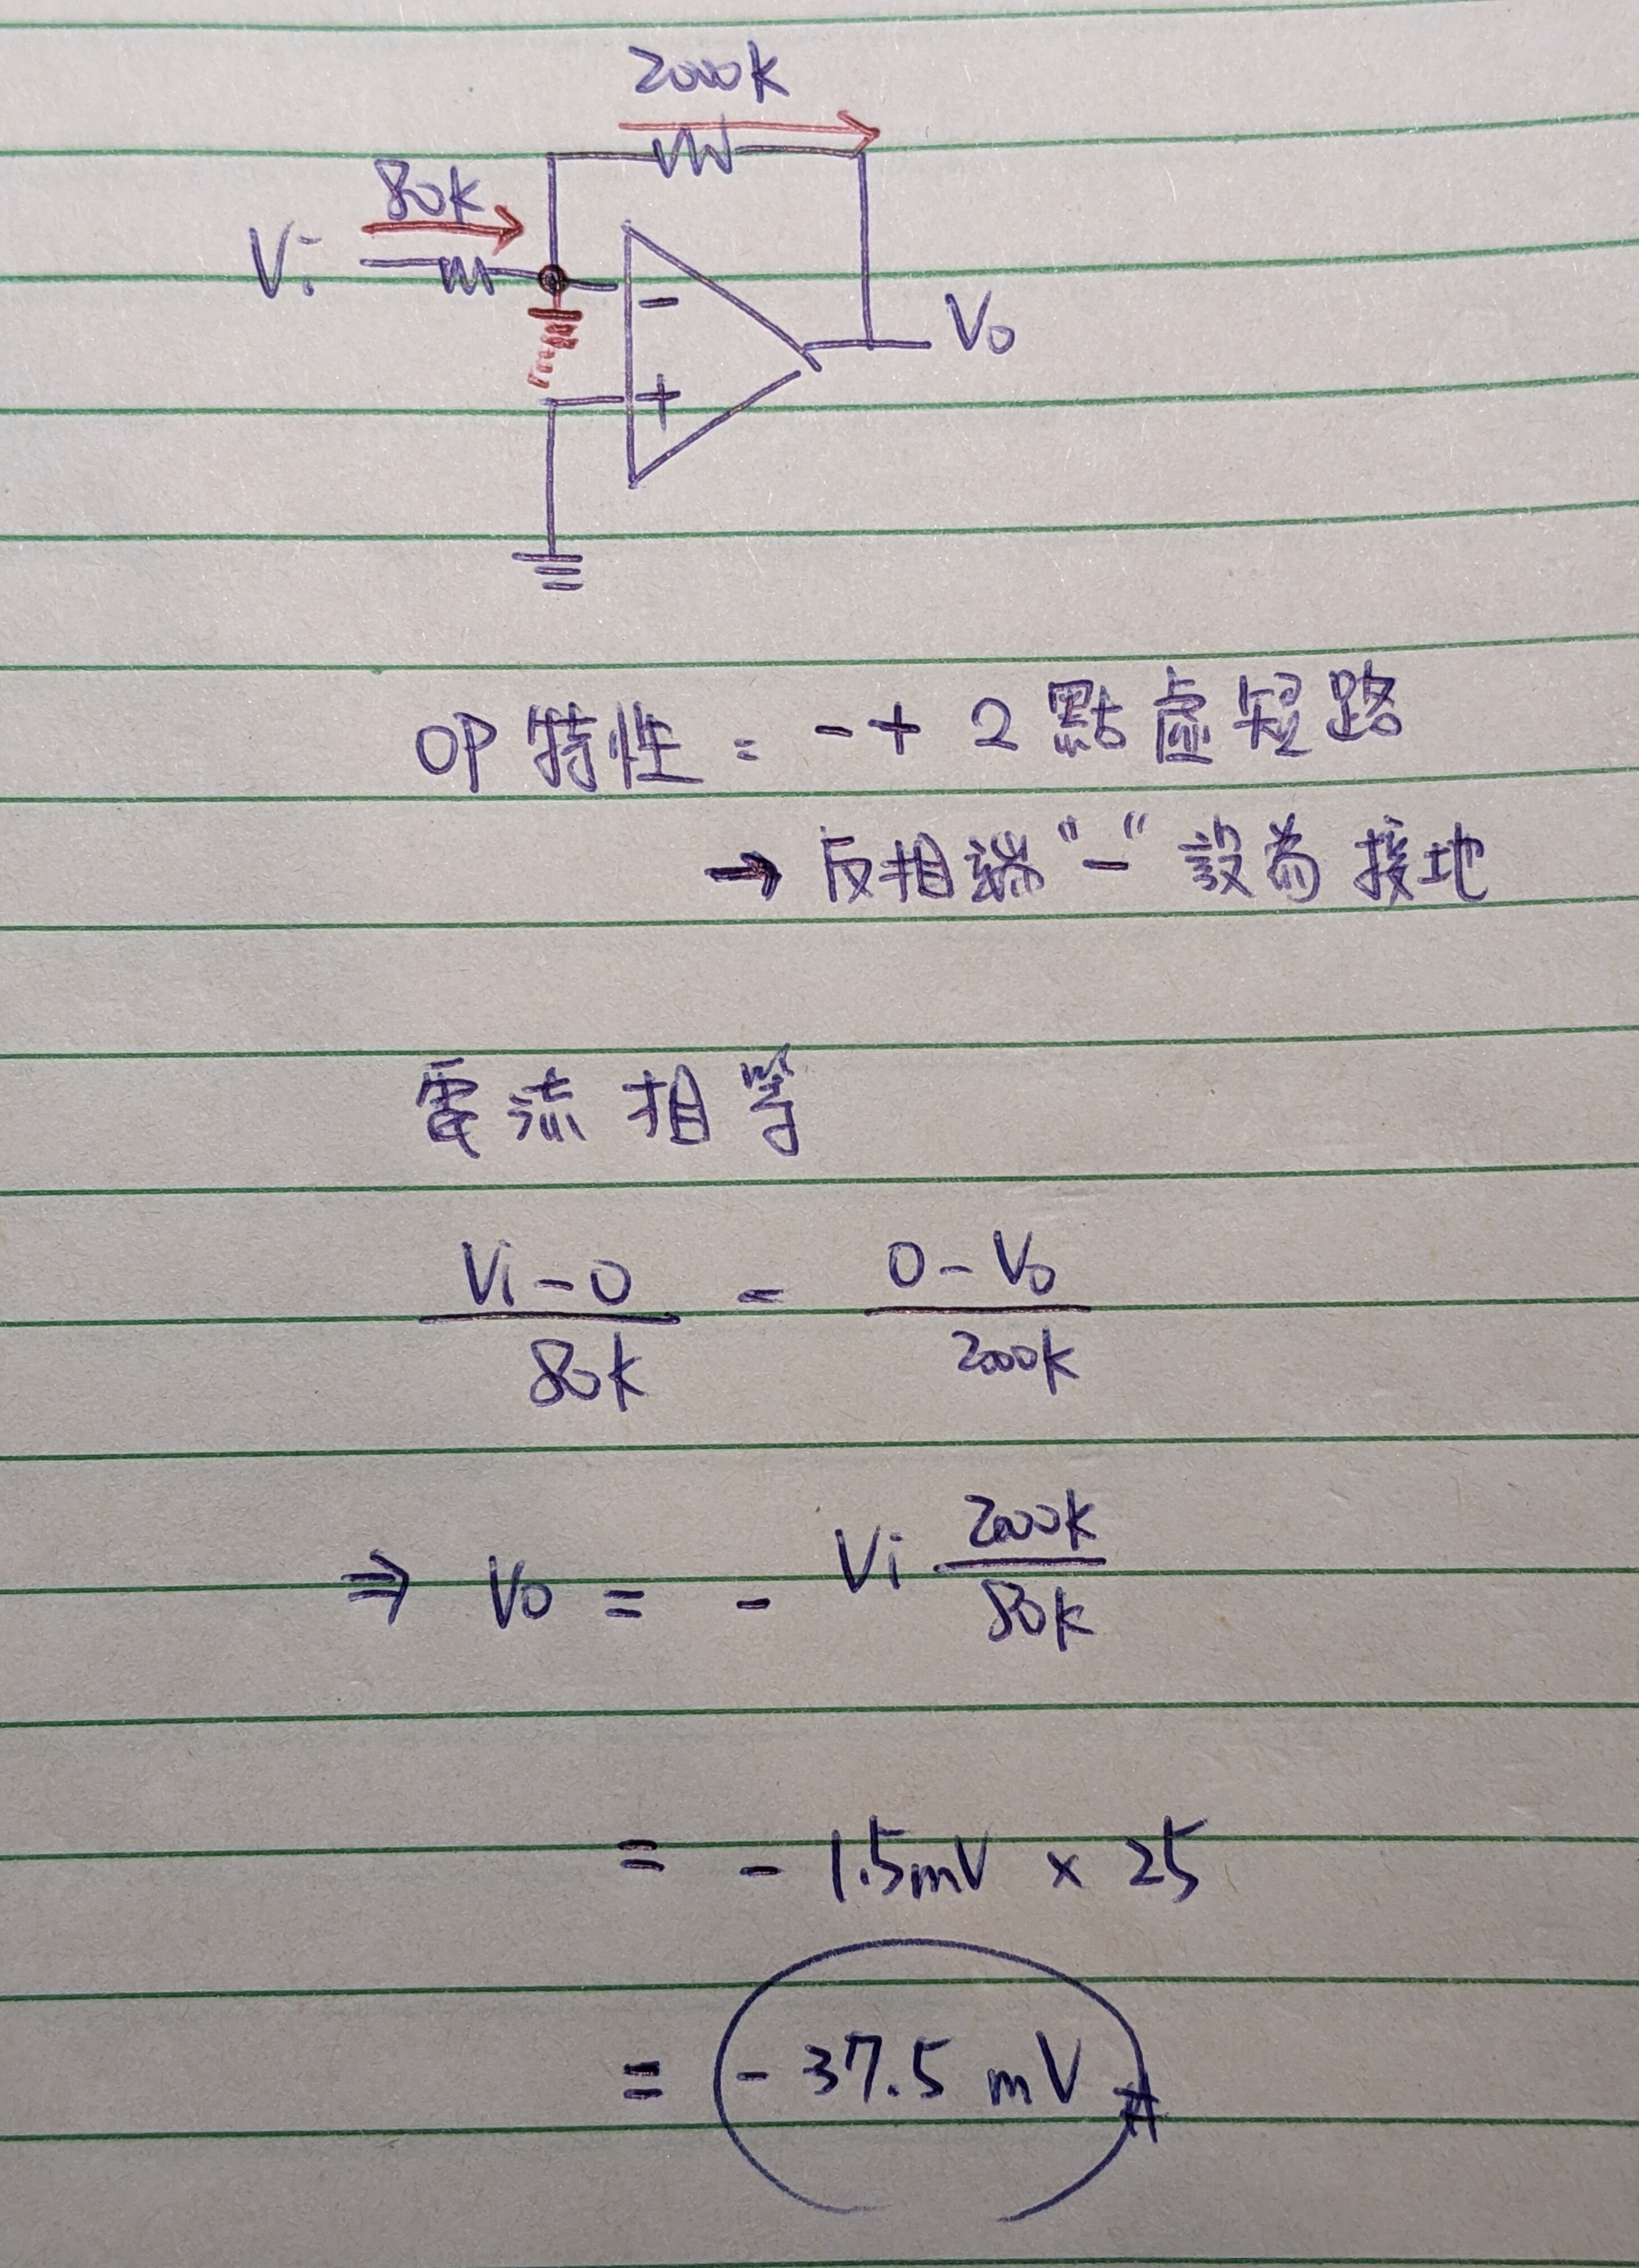 2000k
80k
Vi
-
Vo
+
OP 特性 : - + 2 點虛短路
→ 反相端 "-" 設為接地
電流相等
Vi - 0 = 0 - Vo
80k 2000k
⇒ Vo = - Vi 2000k
80k
= - 1.5mV × 25
= - 37.5 mV #